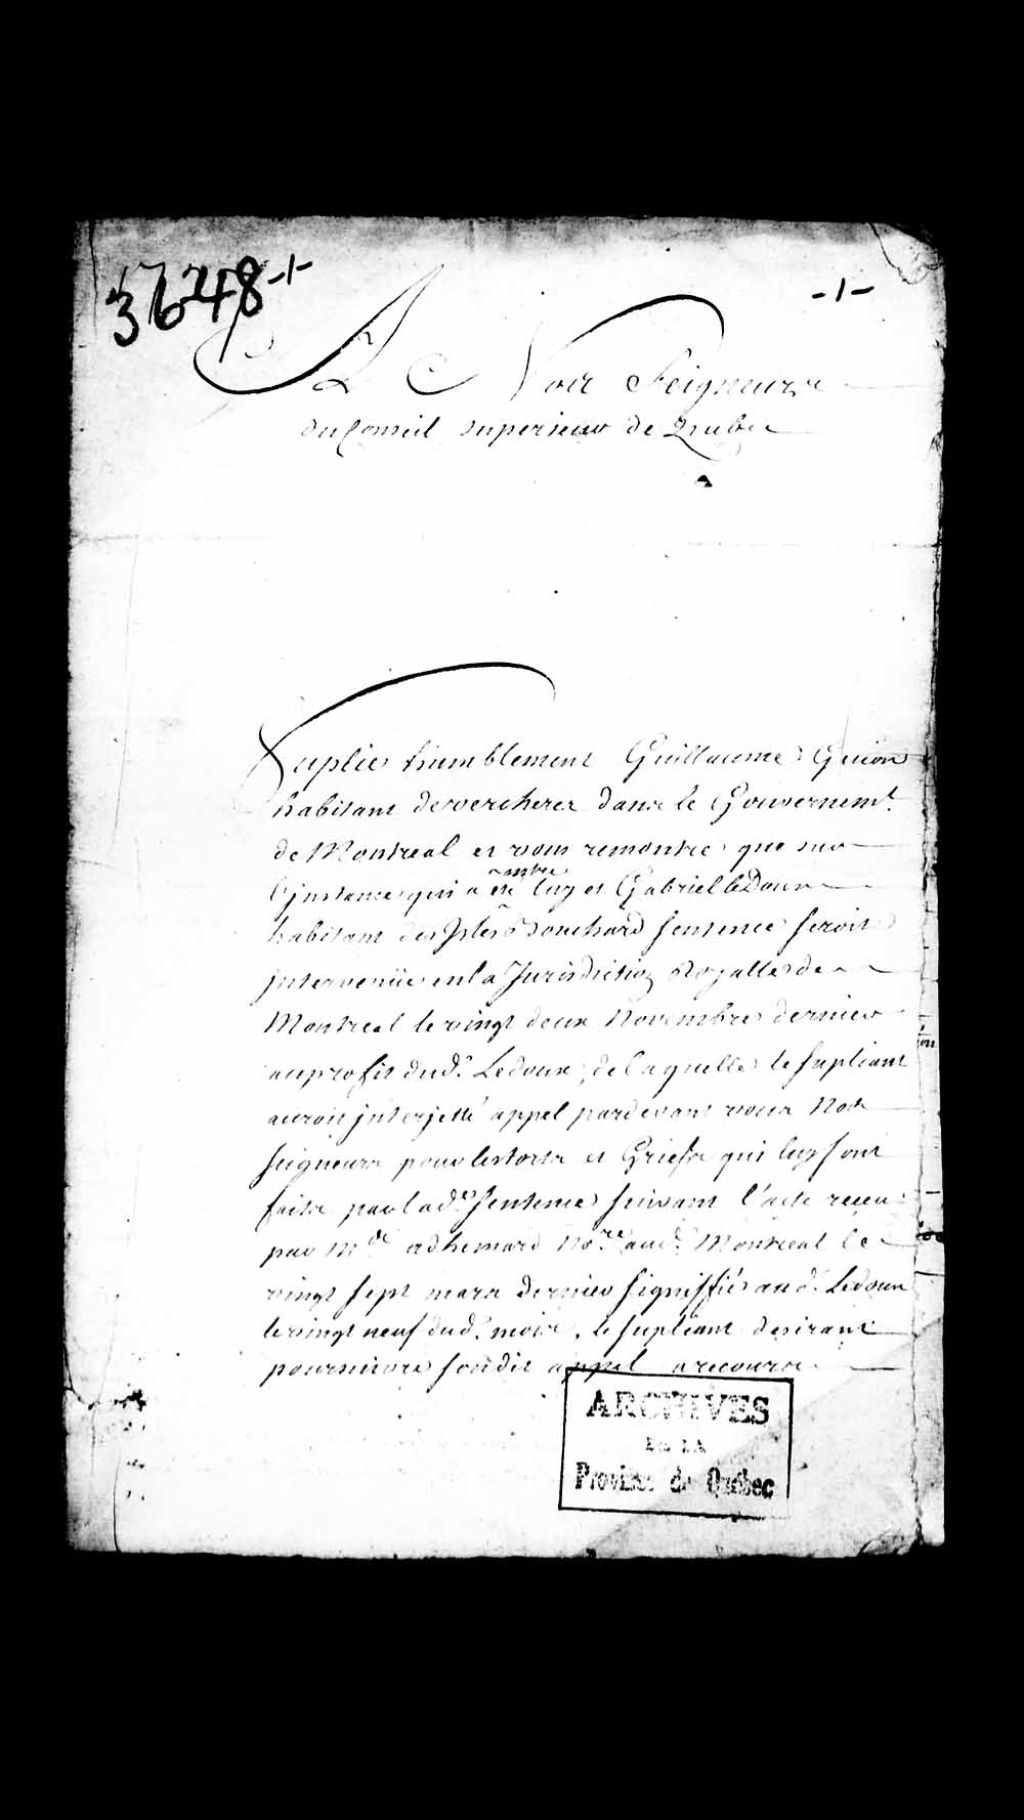 3648 -1-
-1-
A Nos Seigneurs
du Conseil superieur de Quebec
Suplie humblement Guillaume Guion
habitant de vercheres dans le Gouvernemt.
de Montreal et vous remontre que sur
l'jnstance qui a eté entre luy et Gabriel le Doux
habitant des Jsles Bouchard sentence seroit
jntervenüe en la Jurisdiction Royalle de
Montreal le vingt deux Novembre dernier
au profit dud. Ledoux, de laquelle le supliant
auroit jnterjetté appel pardevant vous Nos
seigneurs pour les torts et Griefs qui luy sont
faits par lade. sentence suivant l'acte receu
par Me. adhemard Nore. aud. Montreal le
vingt sept mars dernier signiffié aud. Ledoux
le vingt neuf dud. mois, le supliant desirant
poursuivre sondit appel a recours
ARCHIVES
DE LA
Province de Québec